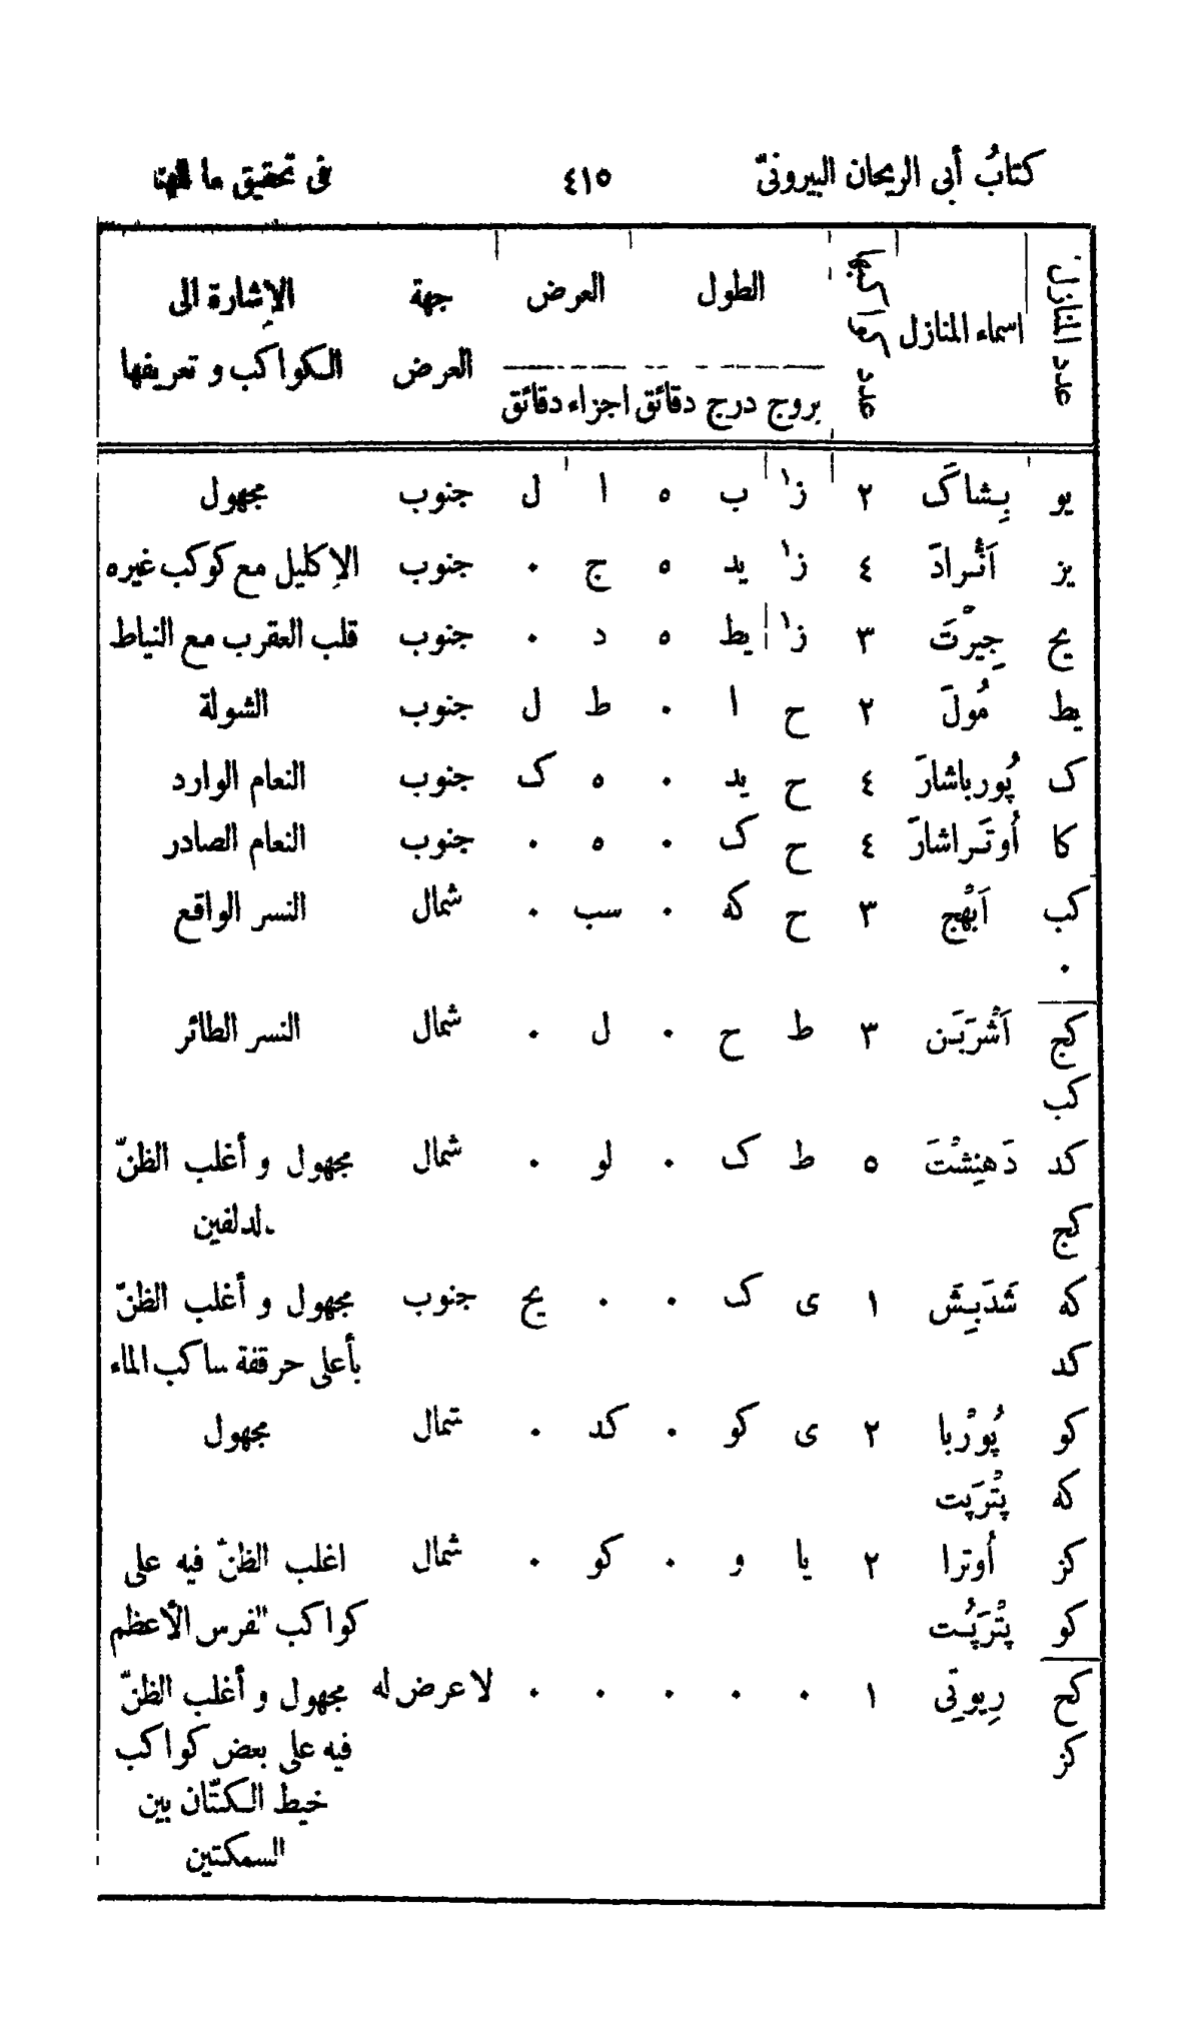 كتابُ أبى الريحان البيرونىّ ٤١٥ فى تحقيق ما للهند
عدد المنازل اسماء المنازل عدد كواكبها الطول العرض جهة العرض الإشارة الى الكواكب و تعريفها
بروج درج دقائق اجزاء دقائق
يو بِشاكَ ٢ ز ب ه ا ل جنوب مجهول
يز اَنْرادَ ٤ ز يد ه ج ٠ جنوب الإكليل مع كوكب غيره
يح جِيرْتَ ٣ ز يط ه د ٠ جنوب قلب العقرب مع النياط
يط مُولَ ٢ ح ا ٠ ط ل جنوب الشولة
ك پُورباشارَ ٤ ح يد ٠ ه ك جنوب النعام الوارد
كا أُوتَراشارَ ٤ ح ك ٠ ه ٠ جنوب النعام الصادر
كب اَبْهج ٣ ح كه ٠ سب ٠ شمال النسر الواقع
٠
كج اَشْرَبَن ٣ ط ح ٠ ل ٠ شمال النسر الطائر
كب
كد دَهنِشْتَ ٥ ط ك ٠ لو ٠ شمال مجهول و أغلب الظنّ
كج لدلفين
كه شَدَبِشَ ١ ى ك ٠ ٠ يح جنوب مجهول و أغلب الظنّ
كد بأعلى حرقفة ساكب الماء
كو پُورْبا ٢ ى كو ٠ كد ٠ شمال مجهول
كه پتْرَپت
كز أُوترا ٢ يا و ٠ كو ٠ شمال اغلب الظنّ فيه على
كو پتْرَپُت كواكب الفرس الأعظم
كح رِيوتِى ١ ٠ ٠ ٠ ٠ ٠ لا عرض له مجهول و أغلب الظنّ
كز فيه على بعض كواكب
خيط الكتّان بين
السمكتين